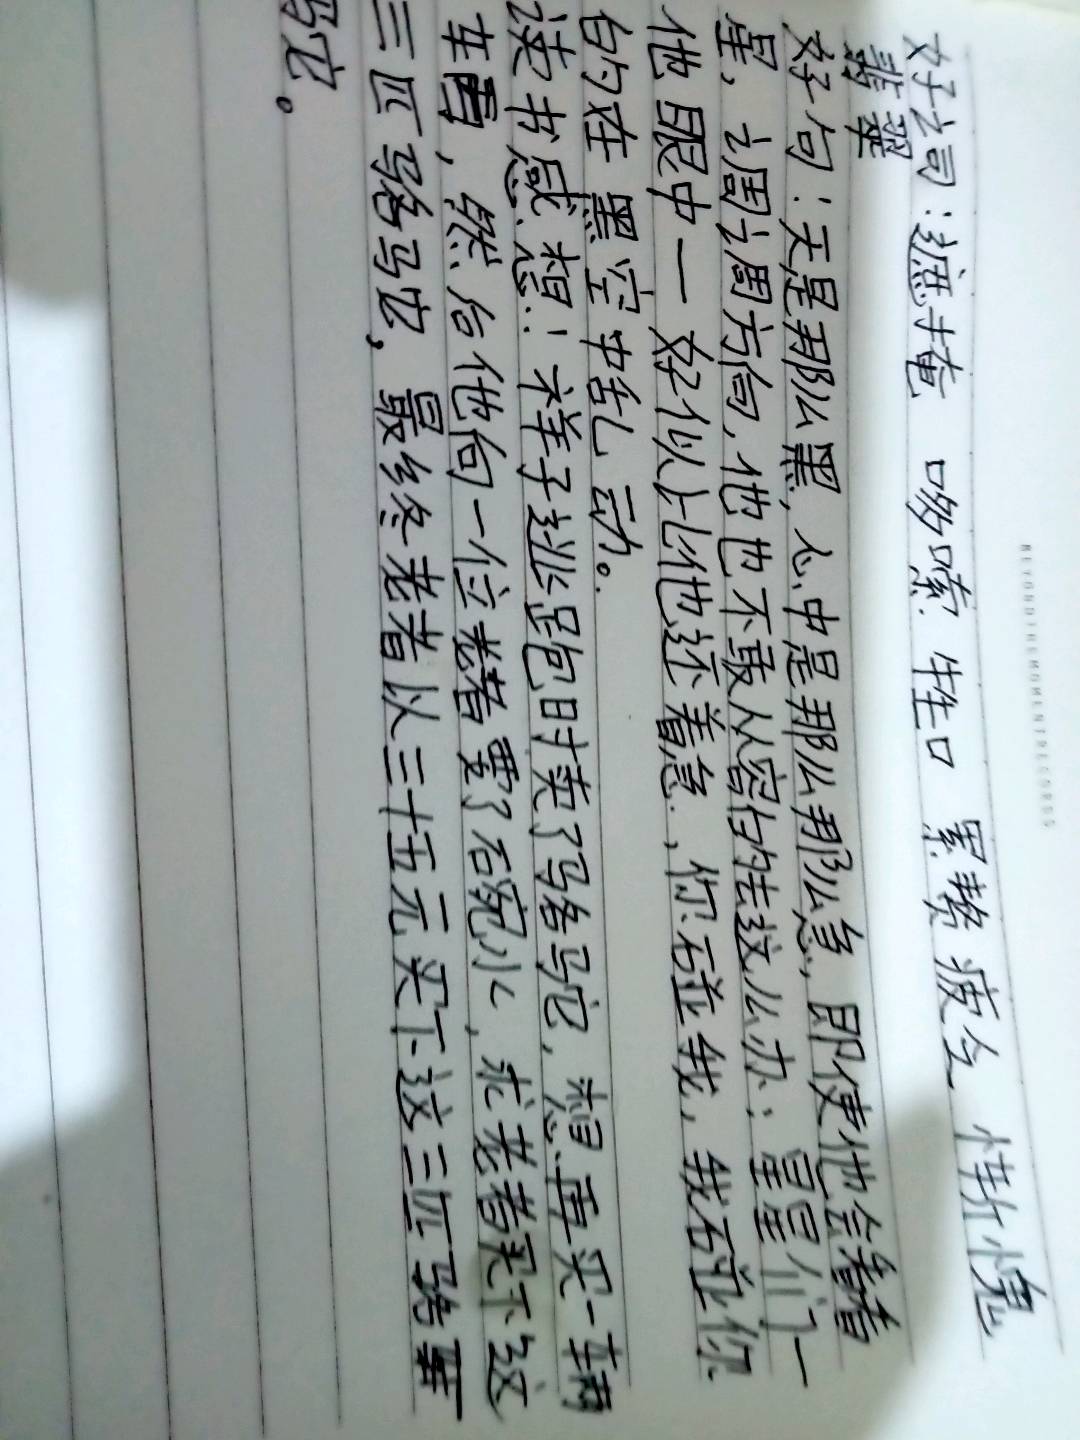 BEYONDTREMOMENTRECORDS
好词:遮掩 哆嗦 牲口 累赘 疲乏 惭愧
翡翠
好句:天是那么黑,心中是那么那么急,即使他会看着
星,调调方向,他也不敢从容的去这么办;星星们一
他眼中一好似比他还着急、你碰我,我碰你
的在黑空中乱动。
读书感想:祥子逃跑时卖了骆驼,想再买一辆
车,然后他向一位老者要了石碗水,求老者买下这
三匹骆驼,最终老者以三十五元买下这三匹骆
驼。